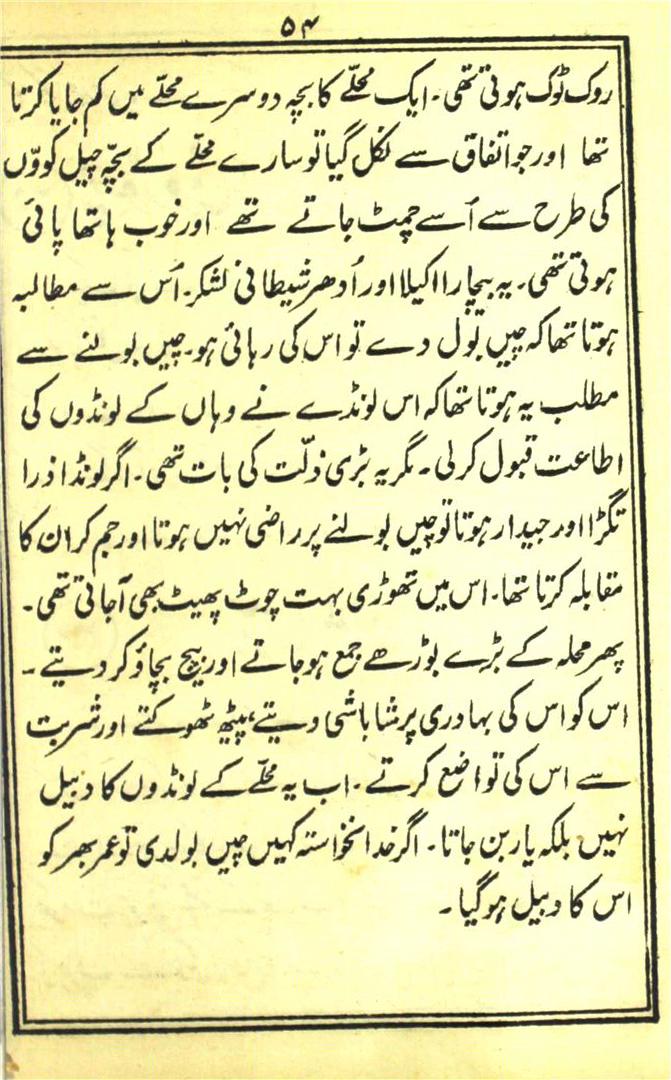 ۵۴
روک ٹوک ہوتی تھی۔ ایک محلّے کا بچہ دوسرے محلّے میں کم جایا کرتا
تھا اور جو اتفاق سے نکل گیا تو سارے محلّے کے بچّے چیل کوّوں
کی طرح سے اُسے چمٹ جاتے تھے اور خوب ہاتھا پائی
ہوتی تھی۔ یہ بیچارا اکیلا اور اُدھر شیطانی لشکر۔ اُس سے مطالبہ
ہوتا تھا کہ چیں بول دے تو اس کی رہائی ہو۔ چیں بولنے سے
مطلب یہ ہوتا تھا کہ اس لونڈے نے وہاں کے لونڈوں کی
اطاعت قبول کر لی۔ مگر یہ بڑی ذلّت کی بات تھی۔ اگر لونڈا ذرا
تگڑا اور جیدار ہوتا تو چیں بولنے پر راضی نہیں ہوتا اور جم کر ان کا
مقابلہ کرتا تھا۔ اس میں تھوڑی بہت چوٹ پھیٹ بھی آجاتی تھی۔
پھر محلہ کے بڑے بوڑھے جمع ہو جاتے اور بیچ بچاؤ کر دیتے۔
اس کو اس کی بہادری پر شاباشی دیتے، پیٹھ ٹھوکتے اور شربت
سے اس کی تواضع کرتے۔ اب یہ محلّے کے لونڈوں کا دبیل
نہیں بلکہ یار بن جاتا۔ اگر خدانخواستہ کہیں چیں بولدی تو عمر بھر کو
اس کا دبیل ہو گیا۔